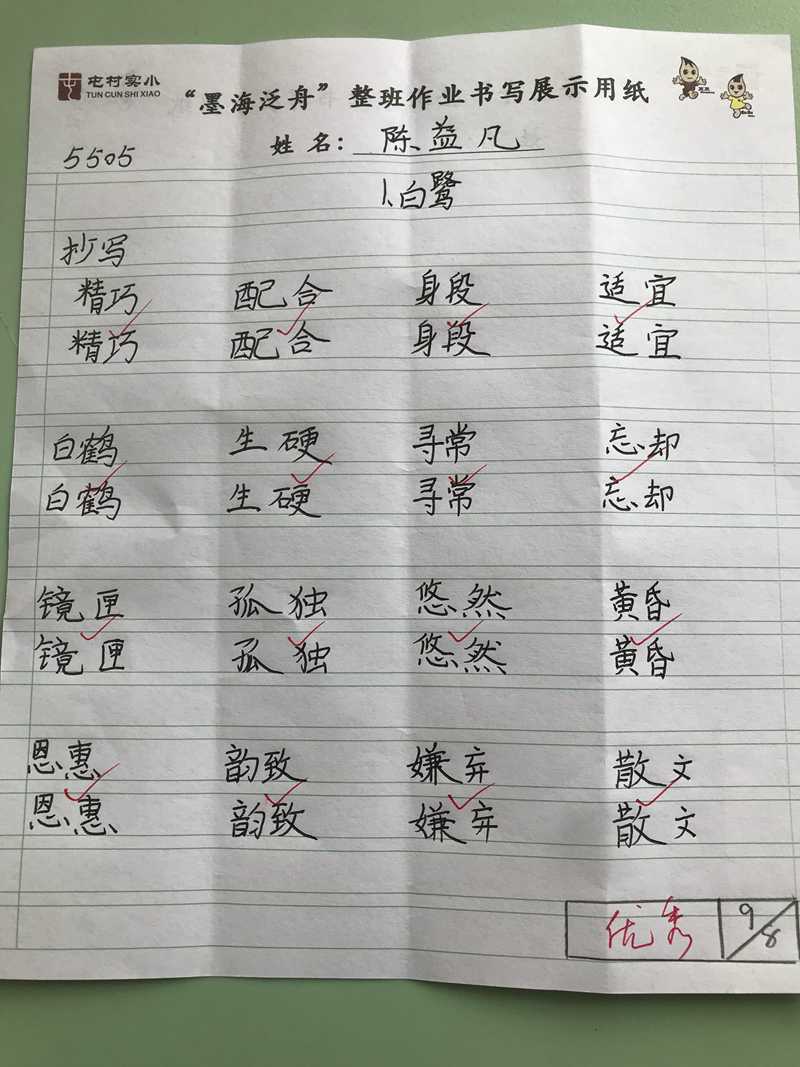 屯村实小
TUN CUN SHI XIAO
“墨海泛舟”整班作业书写展示用纸
姓名：陈益凡
5505
1、白鹭
抄写
精巧 配合 身段 适宜
精巧 配合 身段 适宜
白鹤 生硬 寻常 忘却
白鹤 生硬 寻常 忘却
镜匣 孤独 悠然 黄昏
镜匣 孤独 悠然 黄昏
恩惠 韵致 嫌弃 散文
恩惠 韵致 嫌弃 散文
优秀 9/8